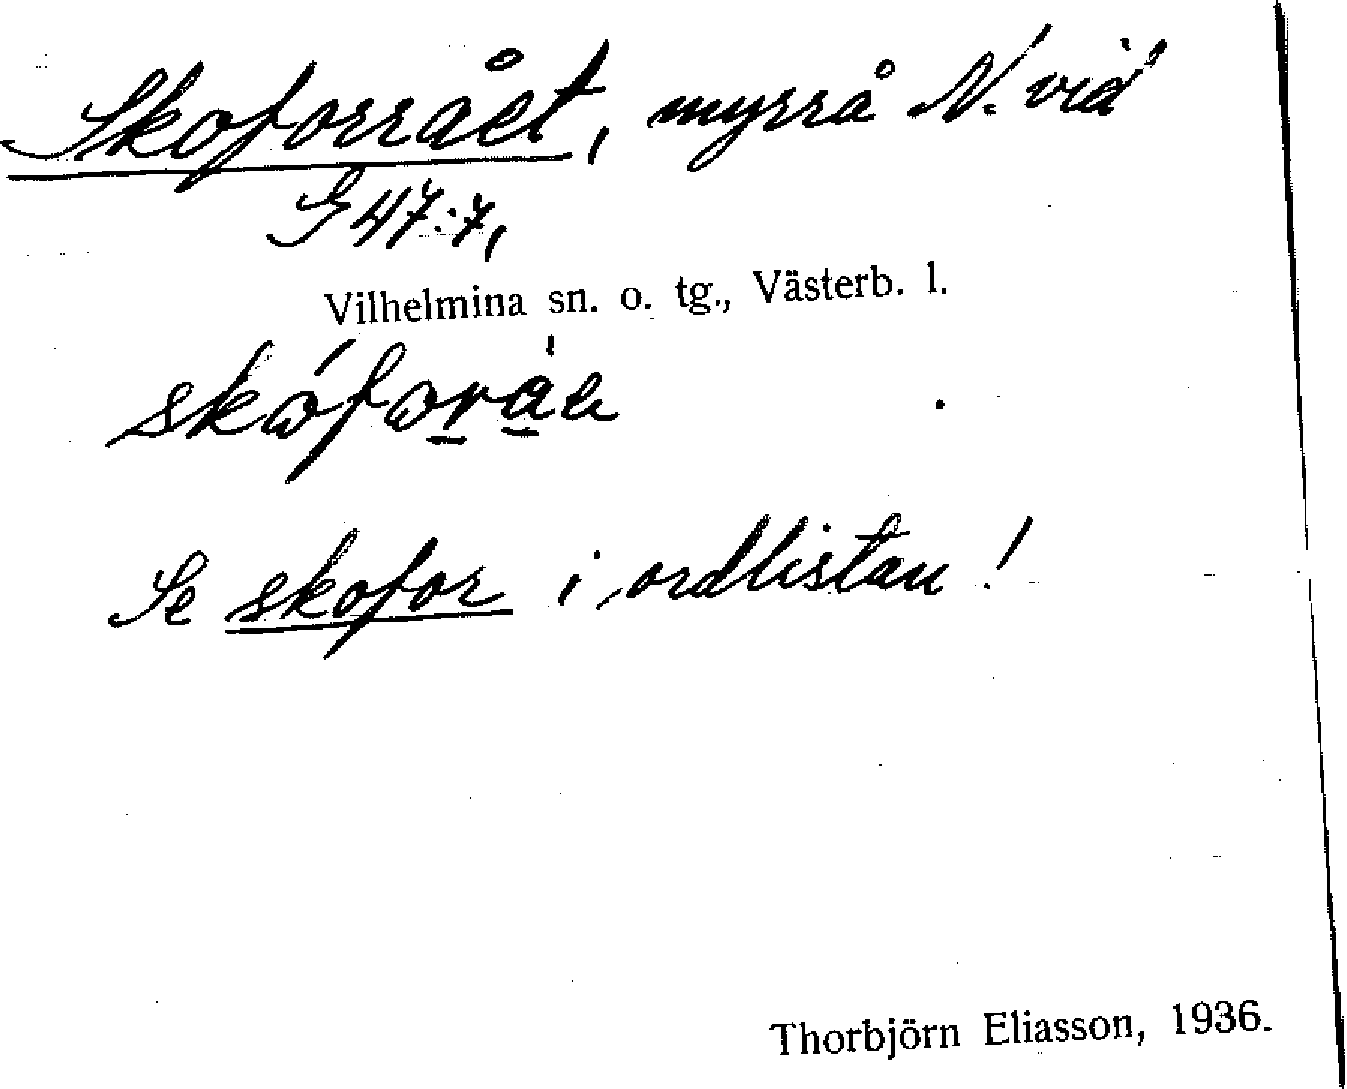 Skoforrået, myrrå N. vid
G 47:7,
Vilhelmina sn. o. tg., Västerb. l.
Se skofor i ordlistan!
Thorbjörn Eliasson, 1936.